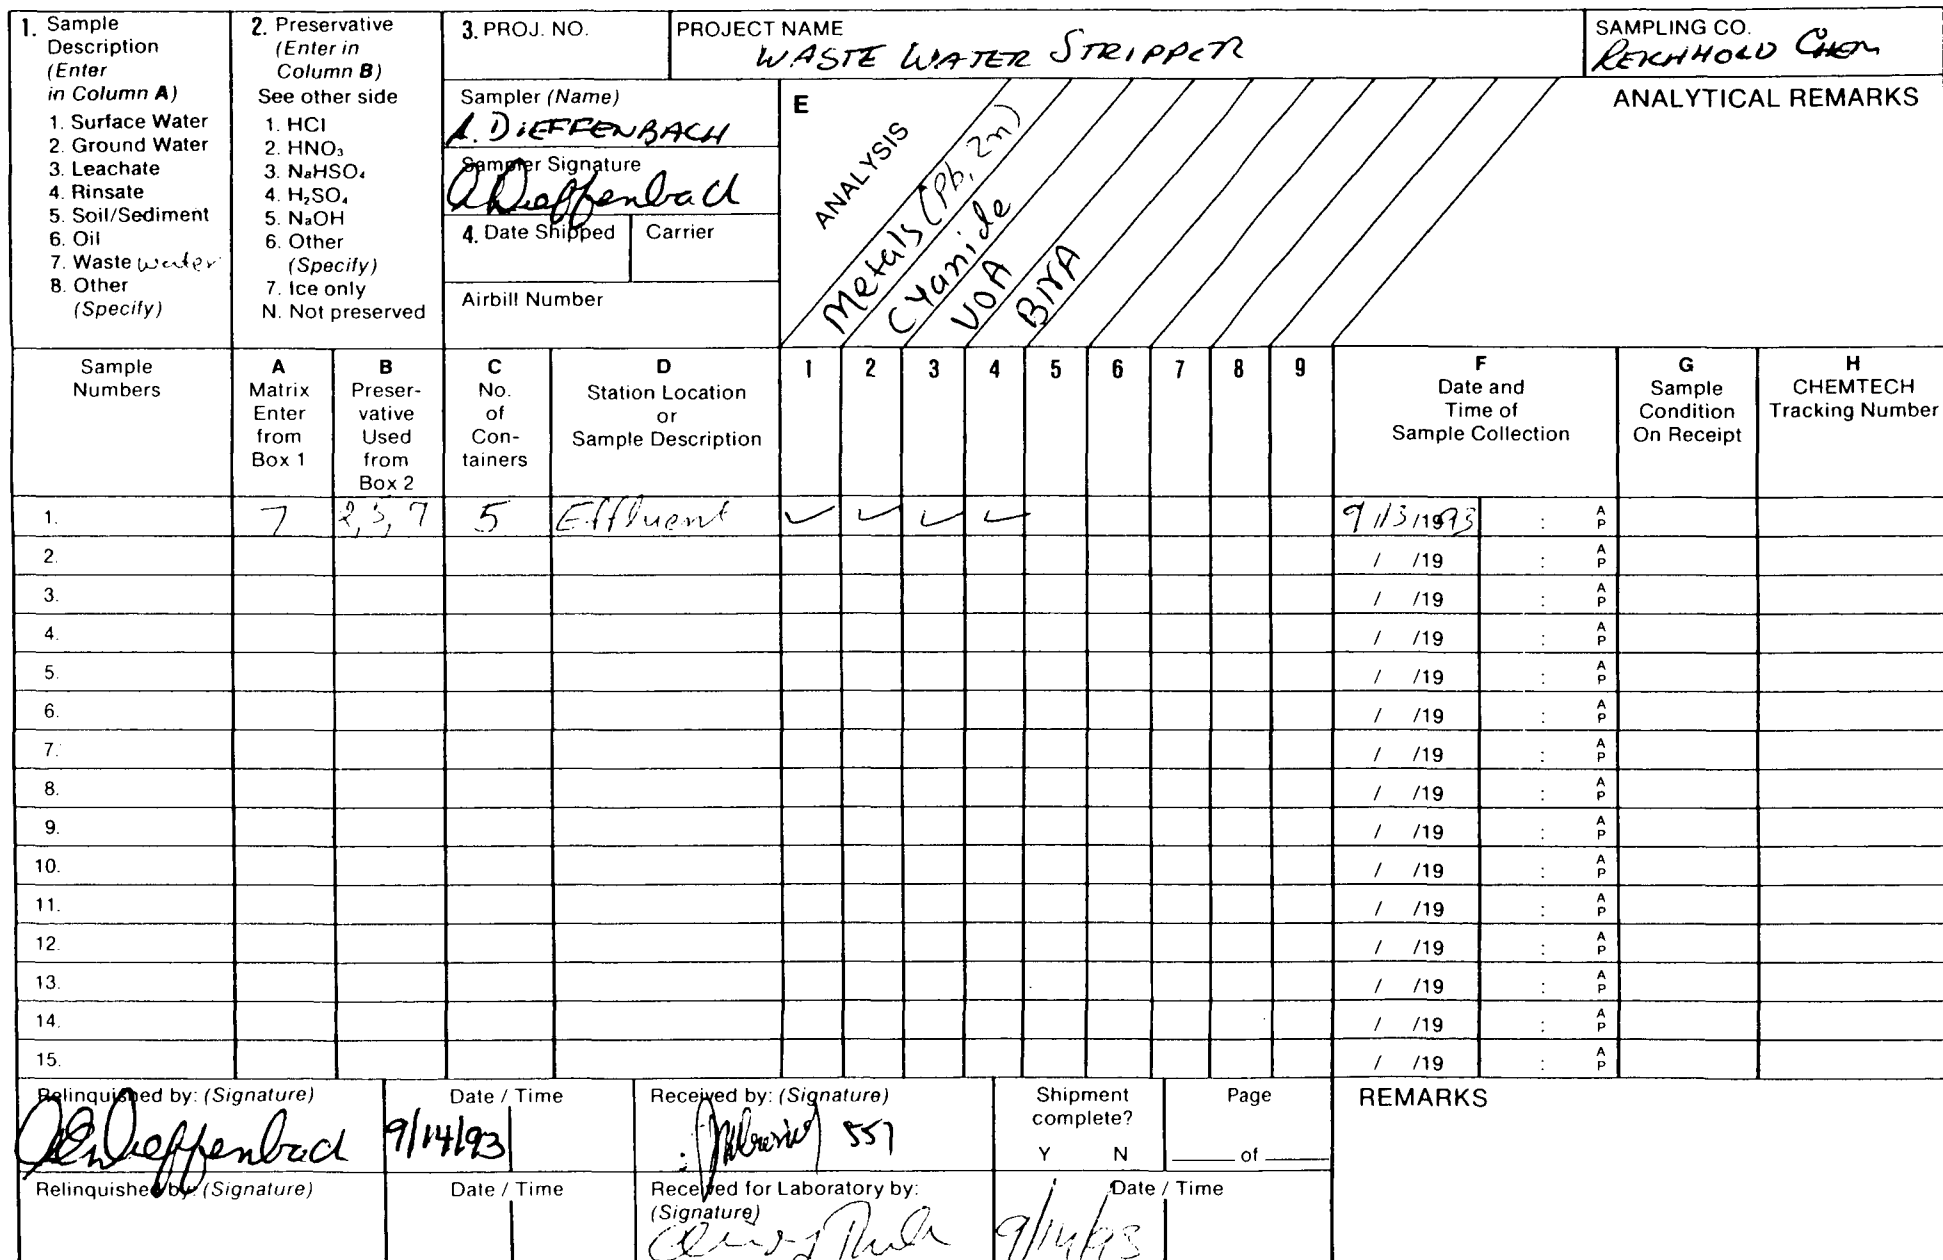 1. Sample Description (Enter in Column A)
1. Surface Water
2. Ground Water
3. Leachate
4. Rinsate
5. Soil/Sediment
6. Oil
7. Waste water
8. Other (Specify)
2. Preservative (Enter in Column B)
See other side
1. HCl
2. HNO₃
3. NaHSO₄
4. H₂SO₄
5. NaOH
6. Other (Specify)
7. Ice only
N. Not preserved
3. PROJ. NO.
PROJECT NAME
WASTE WATER STRIPPER
SAMPLING CO.
REICHHOLD CHEM
Sampler (Name)
A. DIEFFENBACH
Sampler Signature
A Dieffenbach
4. Date Shipped
Carrier
Airbill Number
E
ANALYSIS
Metals (Pb, Zn)
CYanide
VOA
BNA
ANALYTICAL REMARKS
Sample Numbers
A Matrix Enter from Box 1
B Preser-vative Used from Box 2
C No. of Con-tainers
D Station Location or Sample Description
1 2 3 4 5 6 7 8 9
F Date and Time of Sample Collection
G Sample Condition On Receipt
H CHEMTECH Tracking Number
1. 7 2, 5, 7 5 Effluent ✓ ✓ ✓ ✓ 9/13/1993 : A P
2. / /19 : A P
3. / /19 : A P
4. / /19 : A P
5. / /19 : A P
6. / /19 : A P
7. / /19 : A P
8. / /19 : A P
9. / /19 : A P
10. / /19 : A P
11. / /19 : A P
12. / /19 : A P
13. / /19 : A P
14. / /19 : A P
15. / /19 : A P
Relinquished by: (Signature)
Dieffenbach
Date / Time
9/14/93
Received by: (Signature)
557
Shipment complete?
Y N
Page
of
REMARKS
Relinquished by: (Signature)
Date / Time
Received for Laboratory by: (Signature)
Date / Time
9/14/93